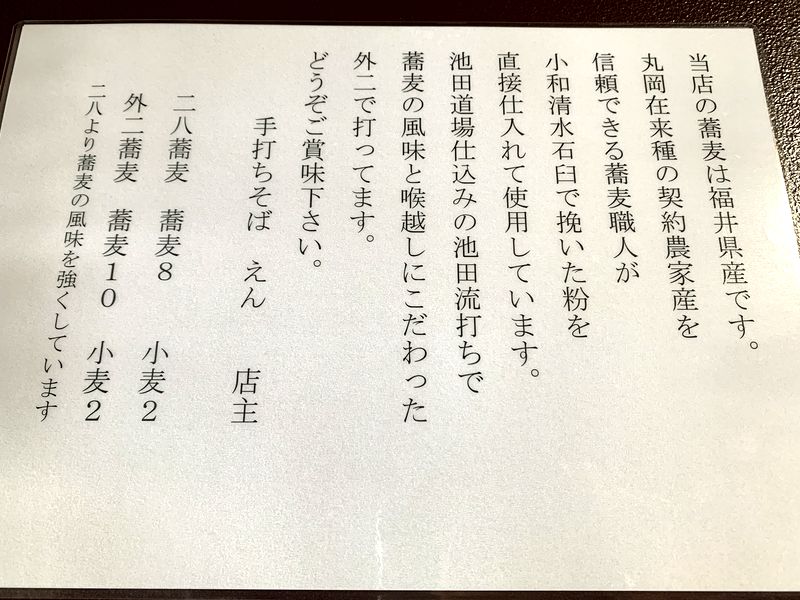 当店の蕎麦は福井県産です。
丸岡在来種の契約農家産を
信頼できる蕎麦職人が
小和清水石臼で挽いた粉を
直接仕入れて使用しています。
池田道場仕込みの池田流打ちで
蕎麦の風味と喉越しにこだわった
外二で打ってます。
どうぞご賞味下さい。
手打ちそば えん 店主
二八蕎麦 蕎麦8 小麦2
外二蕎麦 蕎麦10 小麦2
二八より蕎麦の風味を強くしています